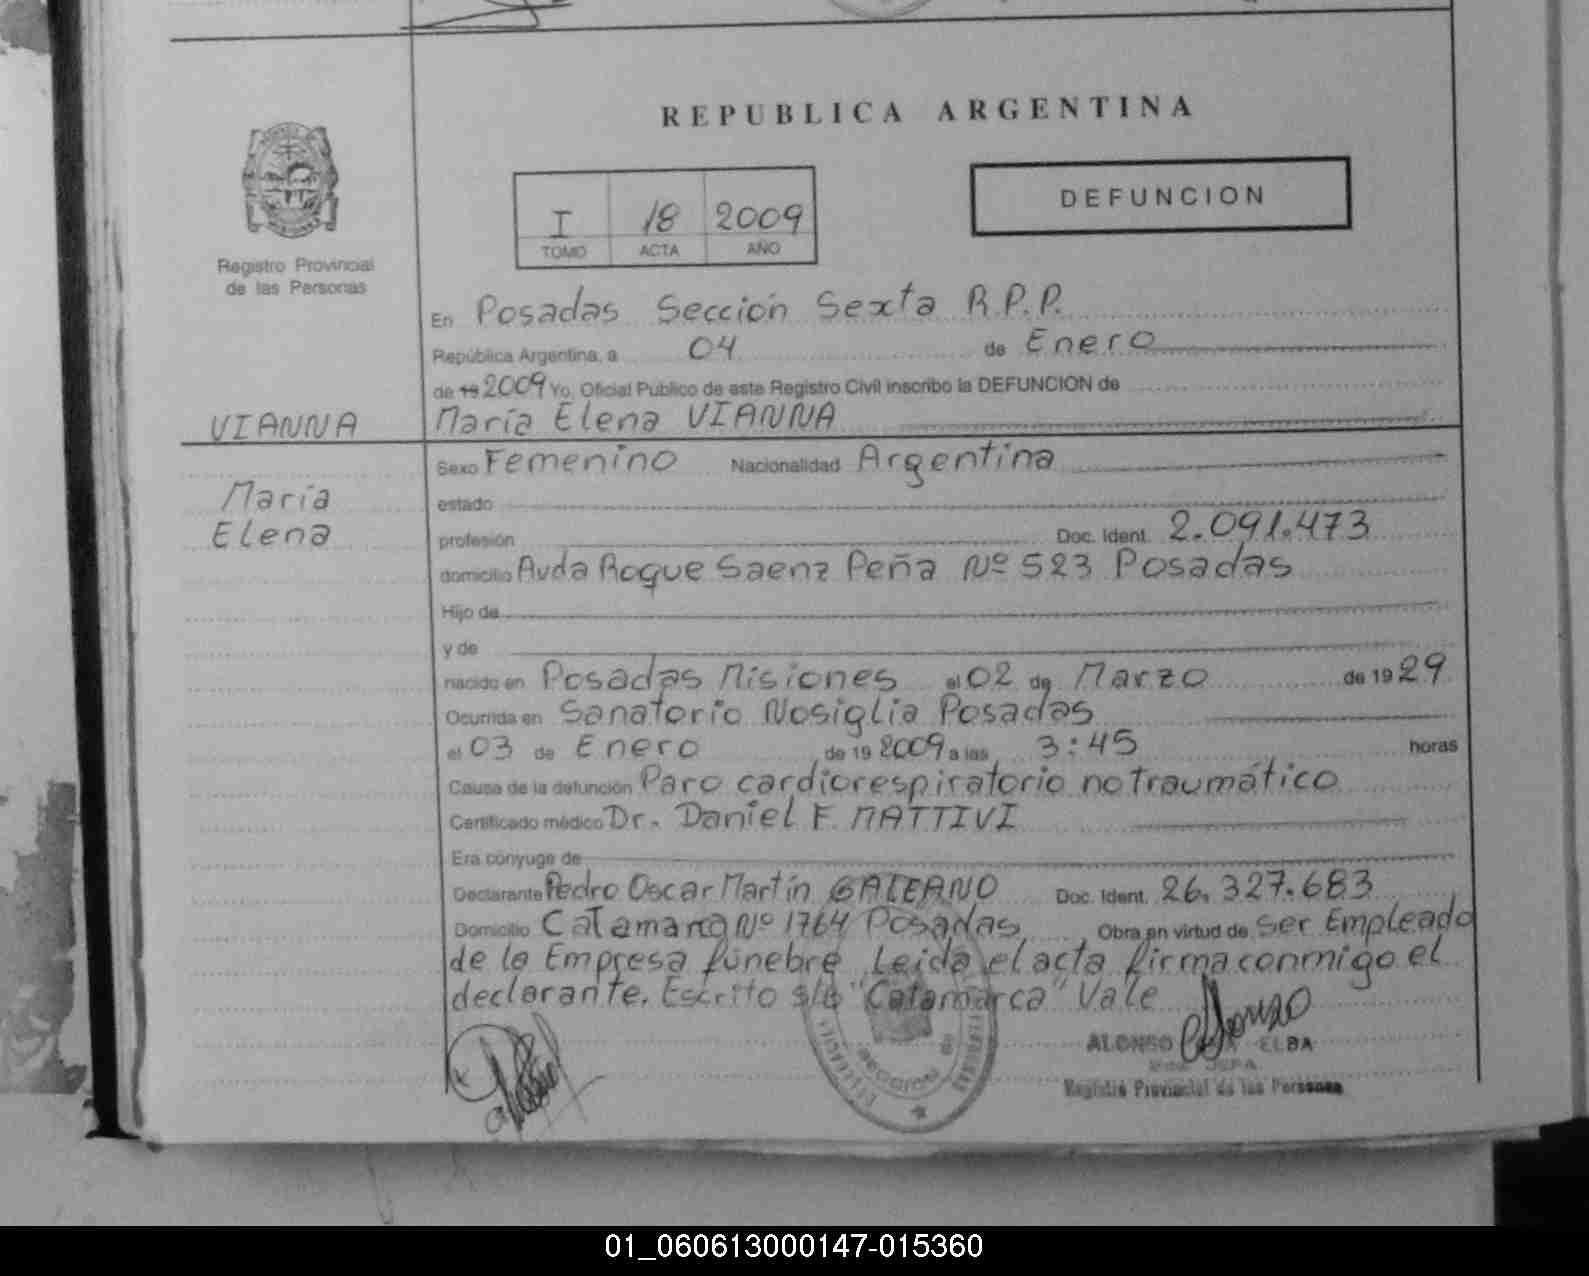 REPUBLICA ARGENTINA
I 18 2009
TOMO ACTA AÑO
DEFUNCION
Registro Provincial
de las Personas
En Posadas Sección Sexta R.P.P.
República Argentina, a 04 de Enero
de 19 2009 Yo, Oficial Público de este Registro Civil inscribo la DEFUNCION de
VIANNA
María Elena VIANNA
Sexo Femenino Nacionalidad Argentina
María
Elena
estado
profesión Doc. Ident. 2.091.473
domicilio Avda Roque Saenz Peña Nº 523 Posadas
Hijo de
y de
nacido en Posadas Misiones el 02 de Marzo de 1929
Ocurrida en Sanatorio Nosiglia Posadas
el 03 de Enero de 19 2009 a las 3:45 horas
Causa de la defunción Paro cardiorespiratorio no traumático
Certificado médico Dr. Daniel F. MATTIVI
Era cónyuge de
Declarante Pedro Oscar Martín GALEANO Doc. Ident. 26.327.683
Domicilio Catamarca Nº 1764 Posadas Obra en virtud de ser Empleado
de la Empresa fúnebre Leida el acta firma conmigo el
declarante. Escrito s/b "Catamarca" Vale
ALONSO ELBA
JEFA
Registro Provincial de las Personas
01_060613000147-015360